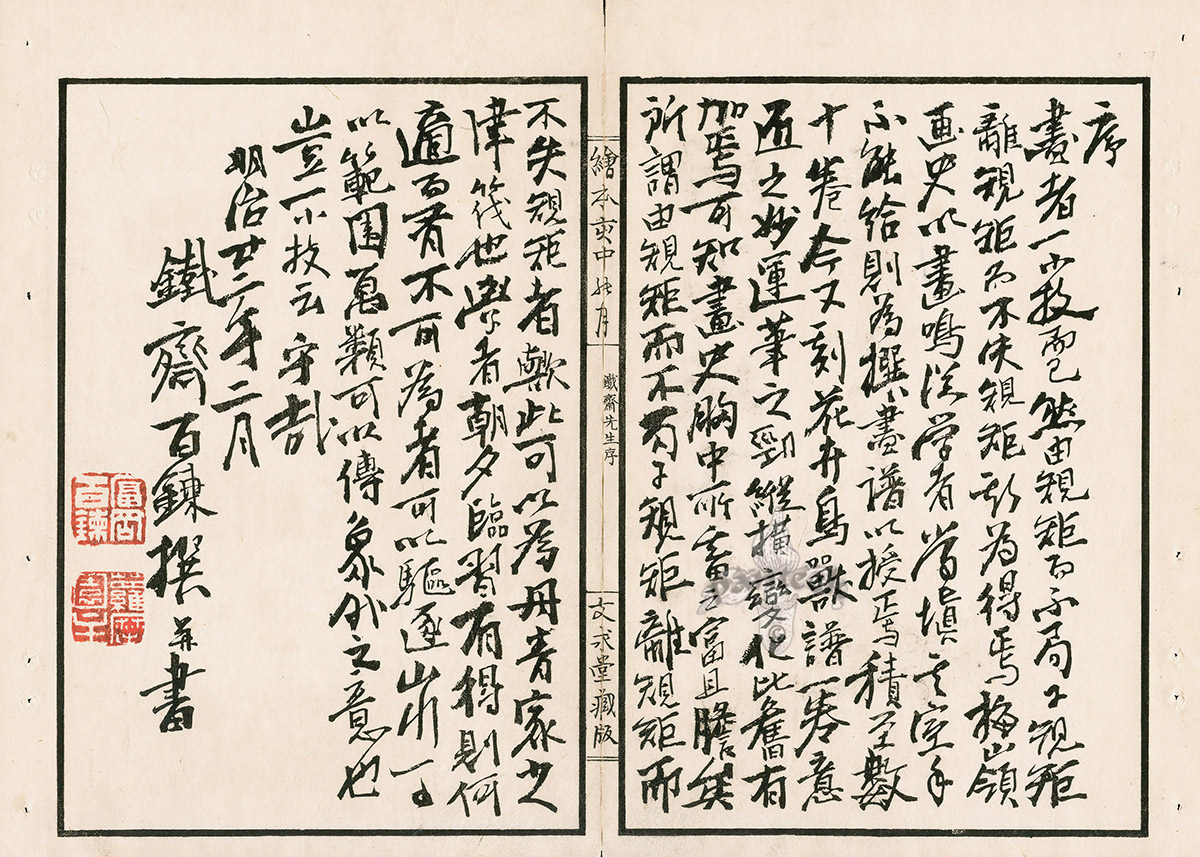 序
畫者一小技而已然由規矩而不局于規矩
離規矩而不失規矩斯為得焉梅嶺
画史以畫鳴從學者常填其室手
不能給則為撰畫譜以授焉積至數
十卷今又刻花卉鳥獸譜一卷意
匠之妙運筆之勁縱橫變化比舊有
加焉可知畫史胸中所蓄之富且贍矣
所謂由規矩而不局于規矩離規矩而
繪本
鐵齋先生序
文求堂藏版
不失規矩者歟此可以為丹青家之
津筏也學者朝夕臨習有得則何
適而有不可為者可以驅逐山川可
以範圍萬類可以傳象外之意也
豈一小技云乎哉
明治廿三年二月
鐵齋百鍊撰并書
富岡百鍊